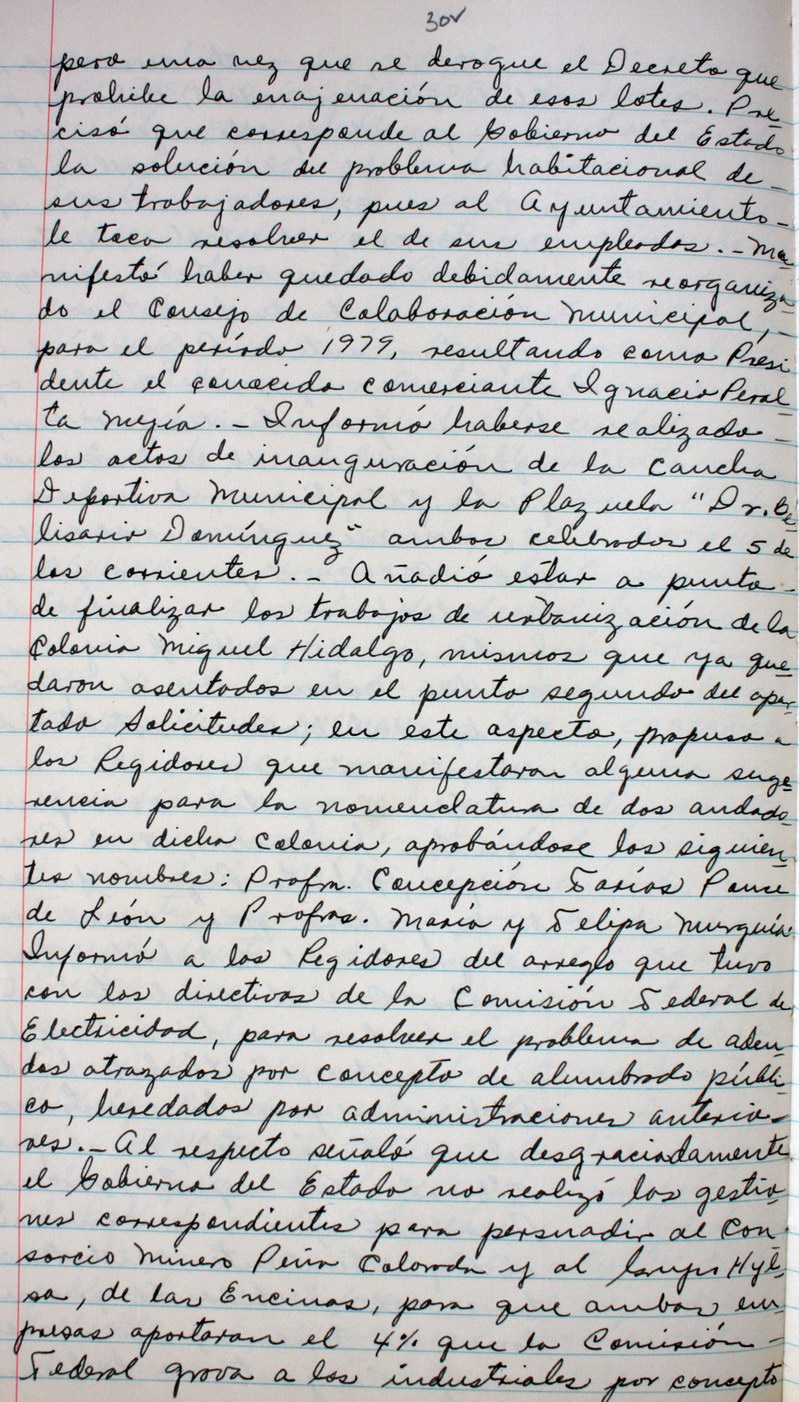 30v
pero una vez que se derogue el Decreto que
prohibe la enajenación de esos lotes. Pre
cisó que corresponde al Gobierno del Estado
la solución del problema habitacional de-
sus trabajadores, pues al Ayuntamiento-
le toca resolver el de sus empleados.- Ma
nifestó haber quedado debidamente reorganiza
do el Consejo de Colaboración Municipal,-
para el período 1979, resultando como Presi
dente el conocido comerciante Ignacio Peral
ta Mejía.- Informó haberse realizado-
los actos de inauguración de la Cancha
Deportiva Municipal y la Plazuela "Dr. Be
lisario Domínguez" ambos celebrados el 5 de
los corrientes.- Añadió estar a punto-
de finalizar los trabajos de urbanización de la
Colonia Miguel Hidalgo, mismos que ya que
daron asentados en el punto segundo del apar-
tado Solicitudes; en este aspecto, propuso a
los Regidores que manifestaran alguna suge
rencia para la nomenclatura de dos andado
res en dicha Colonia, aprobándose los siguien-
tes nombres: Profra. Concepción Farías Ponce
de León y Profras. María y Felipa Murguía
Informó a los Regidores del arreglo que tuvo
con los directivos de la Comisión Federal de
Electricidad, para resolver el problema de adeu-
dos atrazados por concepto de alumbrado públi-
co, heredados por administraciones anterio-
res.- Al respecto señaló que desgraciadamente
el Gobierno del Estado no realizó las gestio
nes correspondientes para persuadir al Con-
sorcio Minero Peña Colorada y al Grupo Hyl-
sa, de las Encinas, para que ambas em-
presas aportaran el 4% que la Comisión-
Federal grava a los industriales por concepto